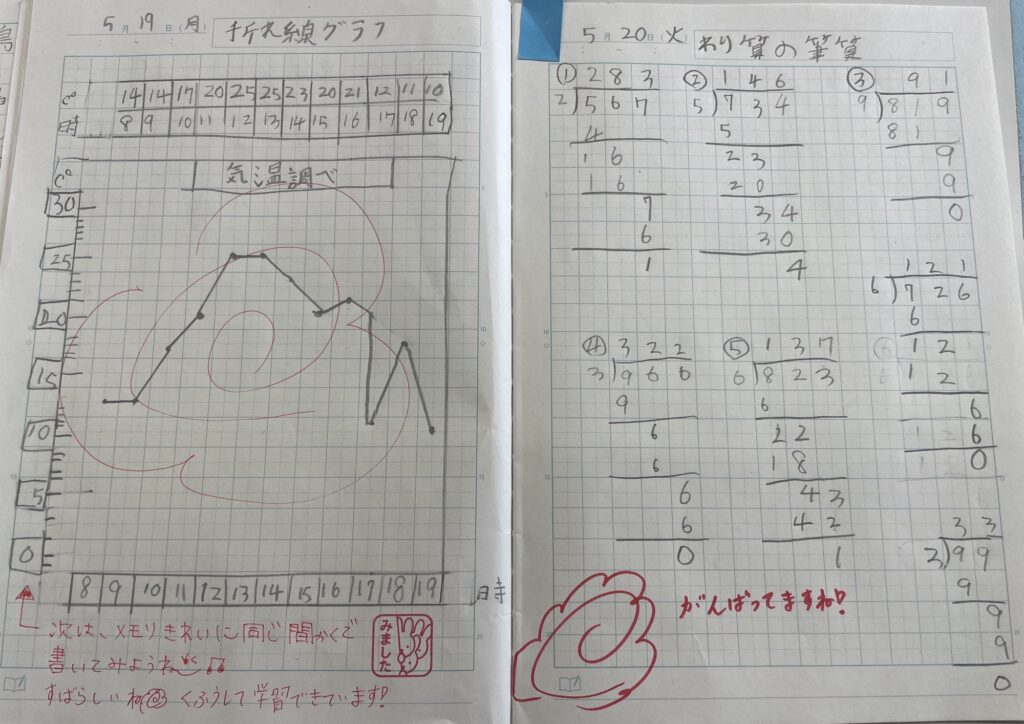 5月19日(月) 折れ線グラフ
C° 14 14 17 20 25 25 23 20 21 12 11 10
時 8 9 10 11 12 13 14 15 16 17 18 19
気温調べ
C°
30
25
20
15
10
5
0
8 9 10 11 12 13 14 15 16 17 18 19 時
次は、メモリきれいに同じ間かくで
書いてみようね
すばらしいね くふうして学習できています!
みました
5月20日(火) わり算の筆算
① 283
2)567
4
16
16
7
6
1
② 146
5)734
5
23
20
34
30
4
③ 91
9)819
81
9
9
0
121
6)726
6
12
12
6
6
0
④ 322
3)966
9
6
6
6
6
0
⑤ 137
6)823
6
22
18
43
42
1
33
2)99
9
9
9
0
がんばってますね!